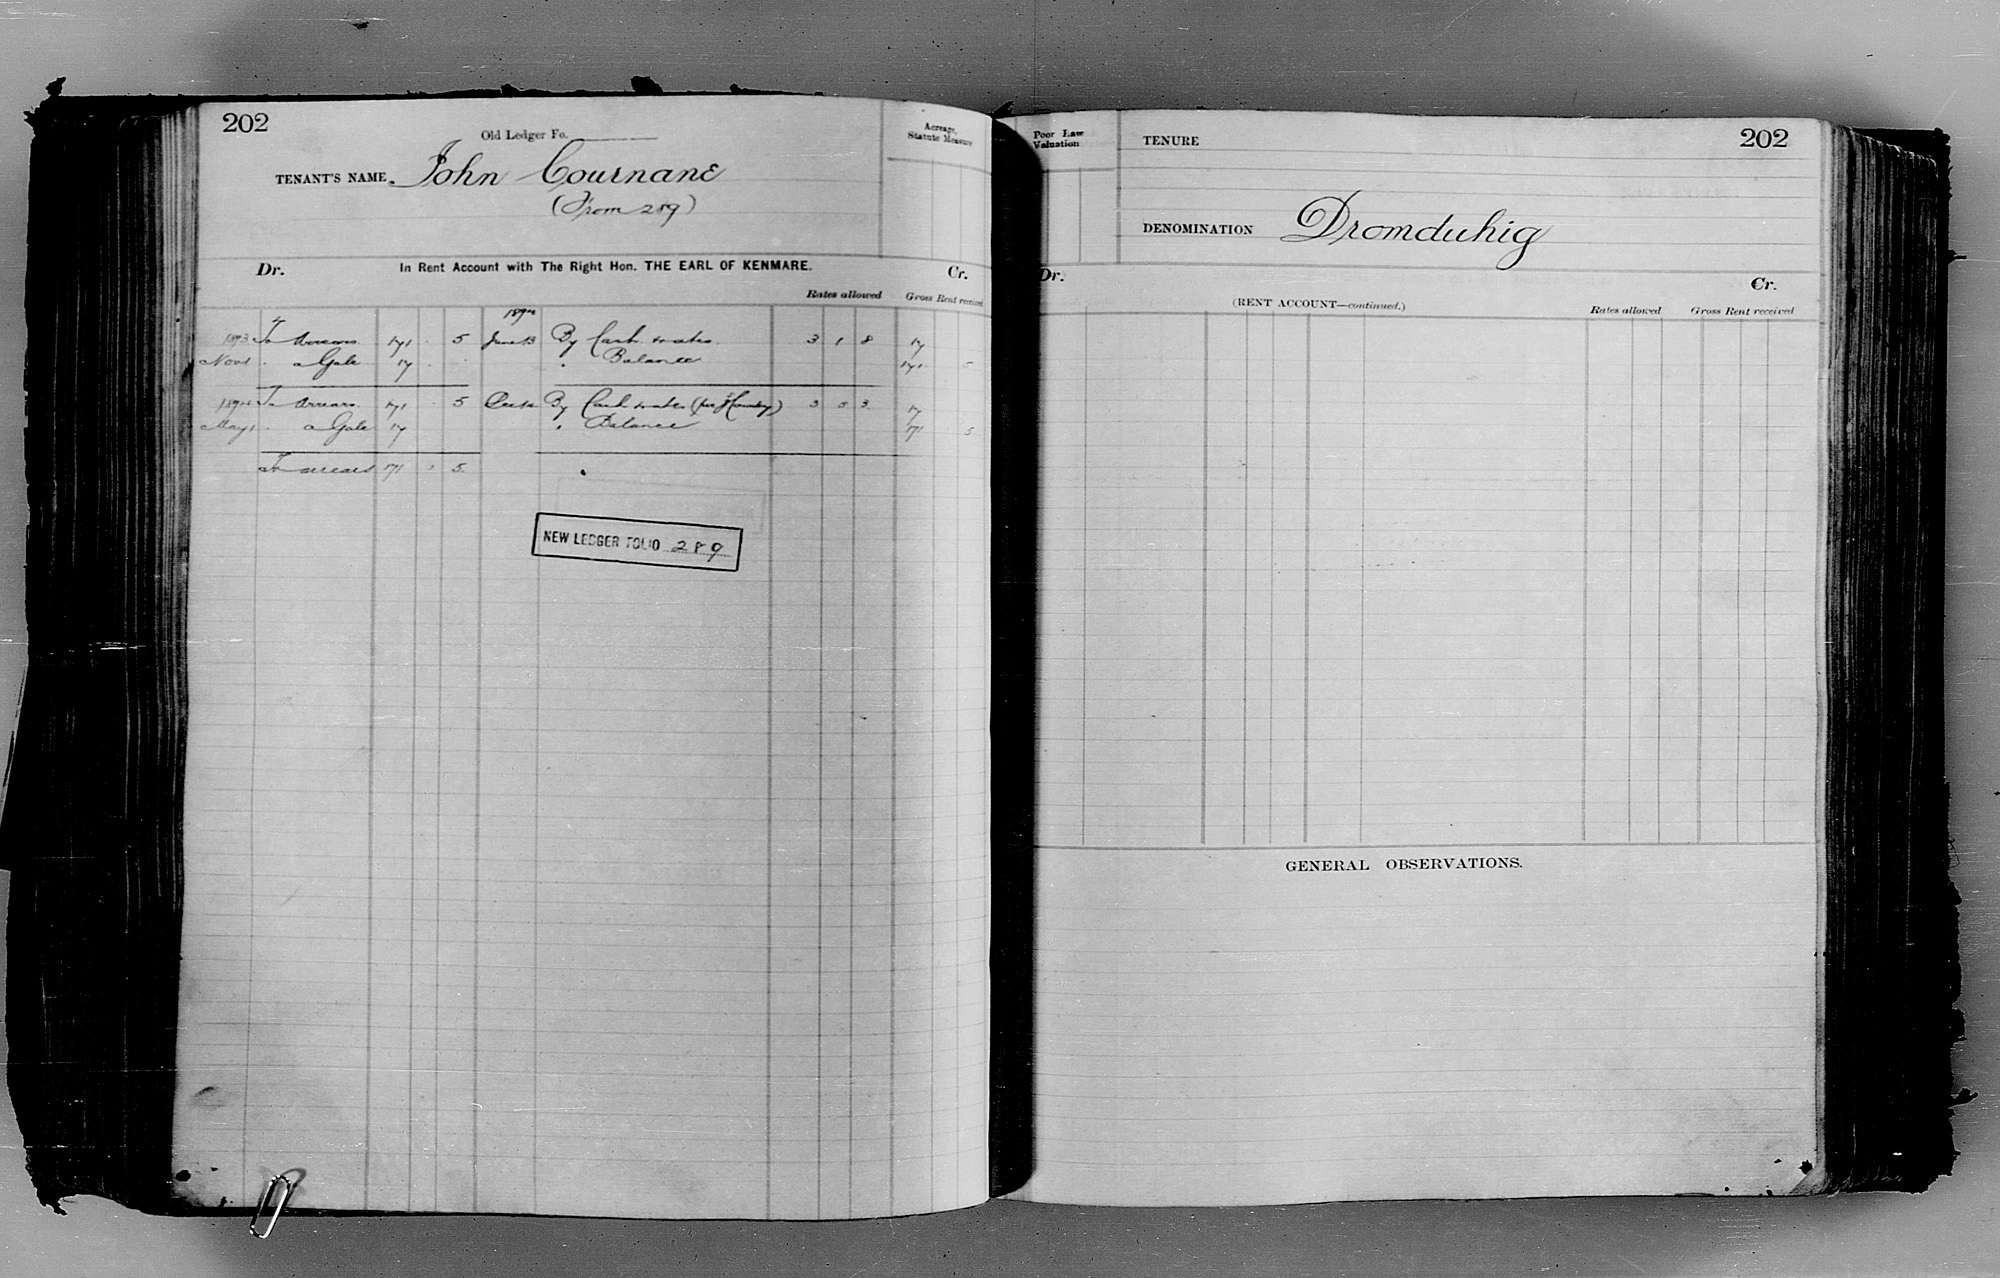 202
Old Ledger Fo.
TENANT'S NAME John Cournane
(From 289)
Acreage, Statute Measure
Dr. In Rent Account with The Right Hon. THE EARL OF KENMARE. Cr.
Rates allowed Gross Rent received
1894
1893 To Arrears 171 . 5 June 13 By Cash & rates 3 1 8 17
Nov 1 . a Gale 17 . . . Balance 171 5
1894 To Arrears 171 . 5 Dec 14 By Cash & rates (per J 3 5 3 17
May 1 . a Gale 17 . Balance 171 5
To arrears 171 . 5
NEW LEDGER FOLIO 289
Poor Law Valuation
TENURE
202
DENOMINATION Dromduhig
Dr. Cr.
(RENT ACCOUNT—continued.)
Rates allowed Gross Rent received
GENERAL OBSERVATIONS.